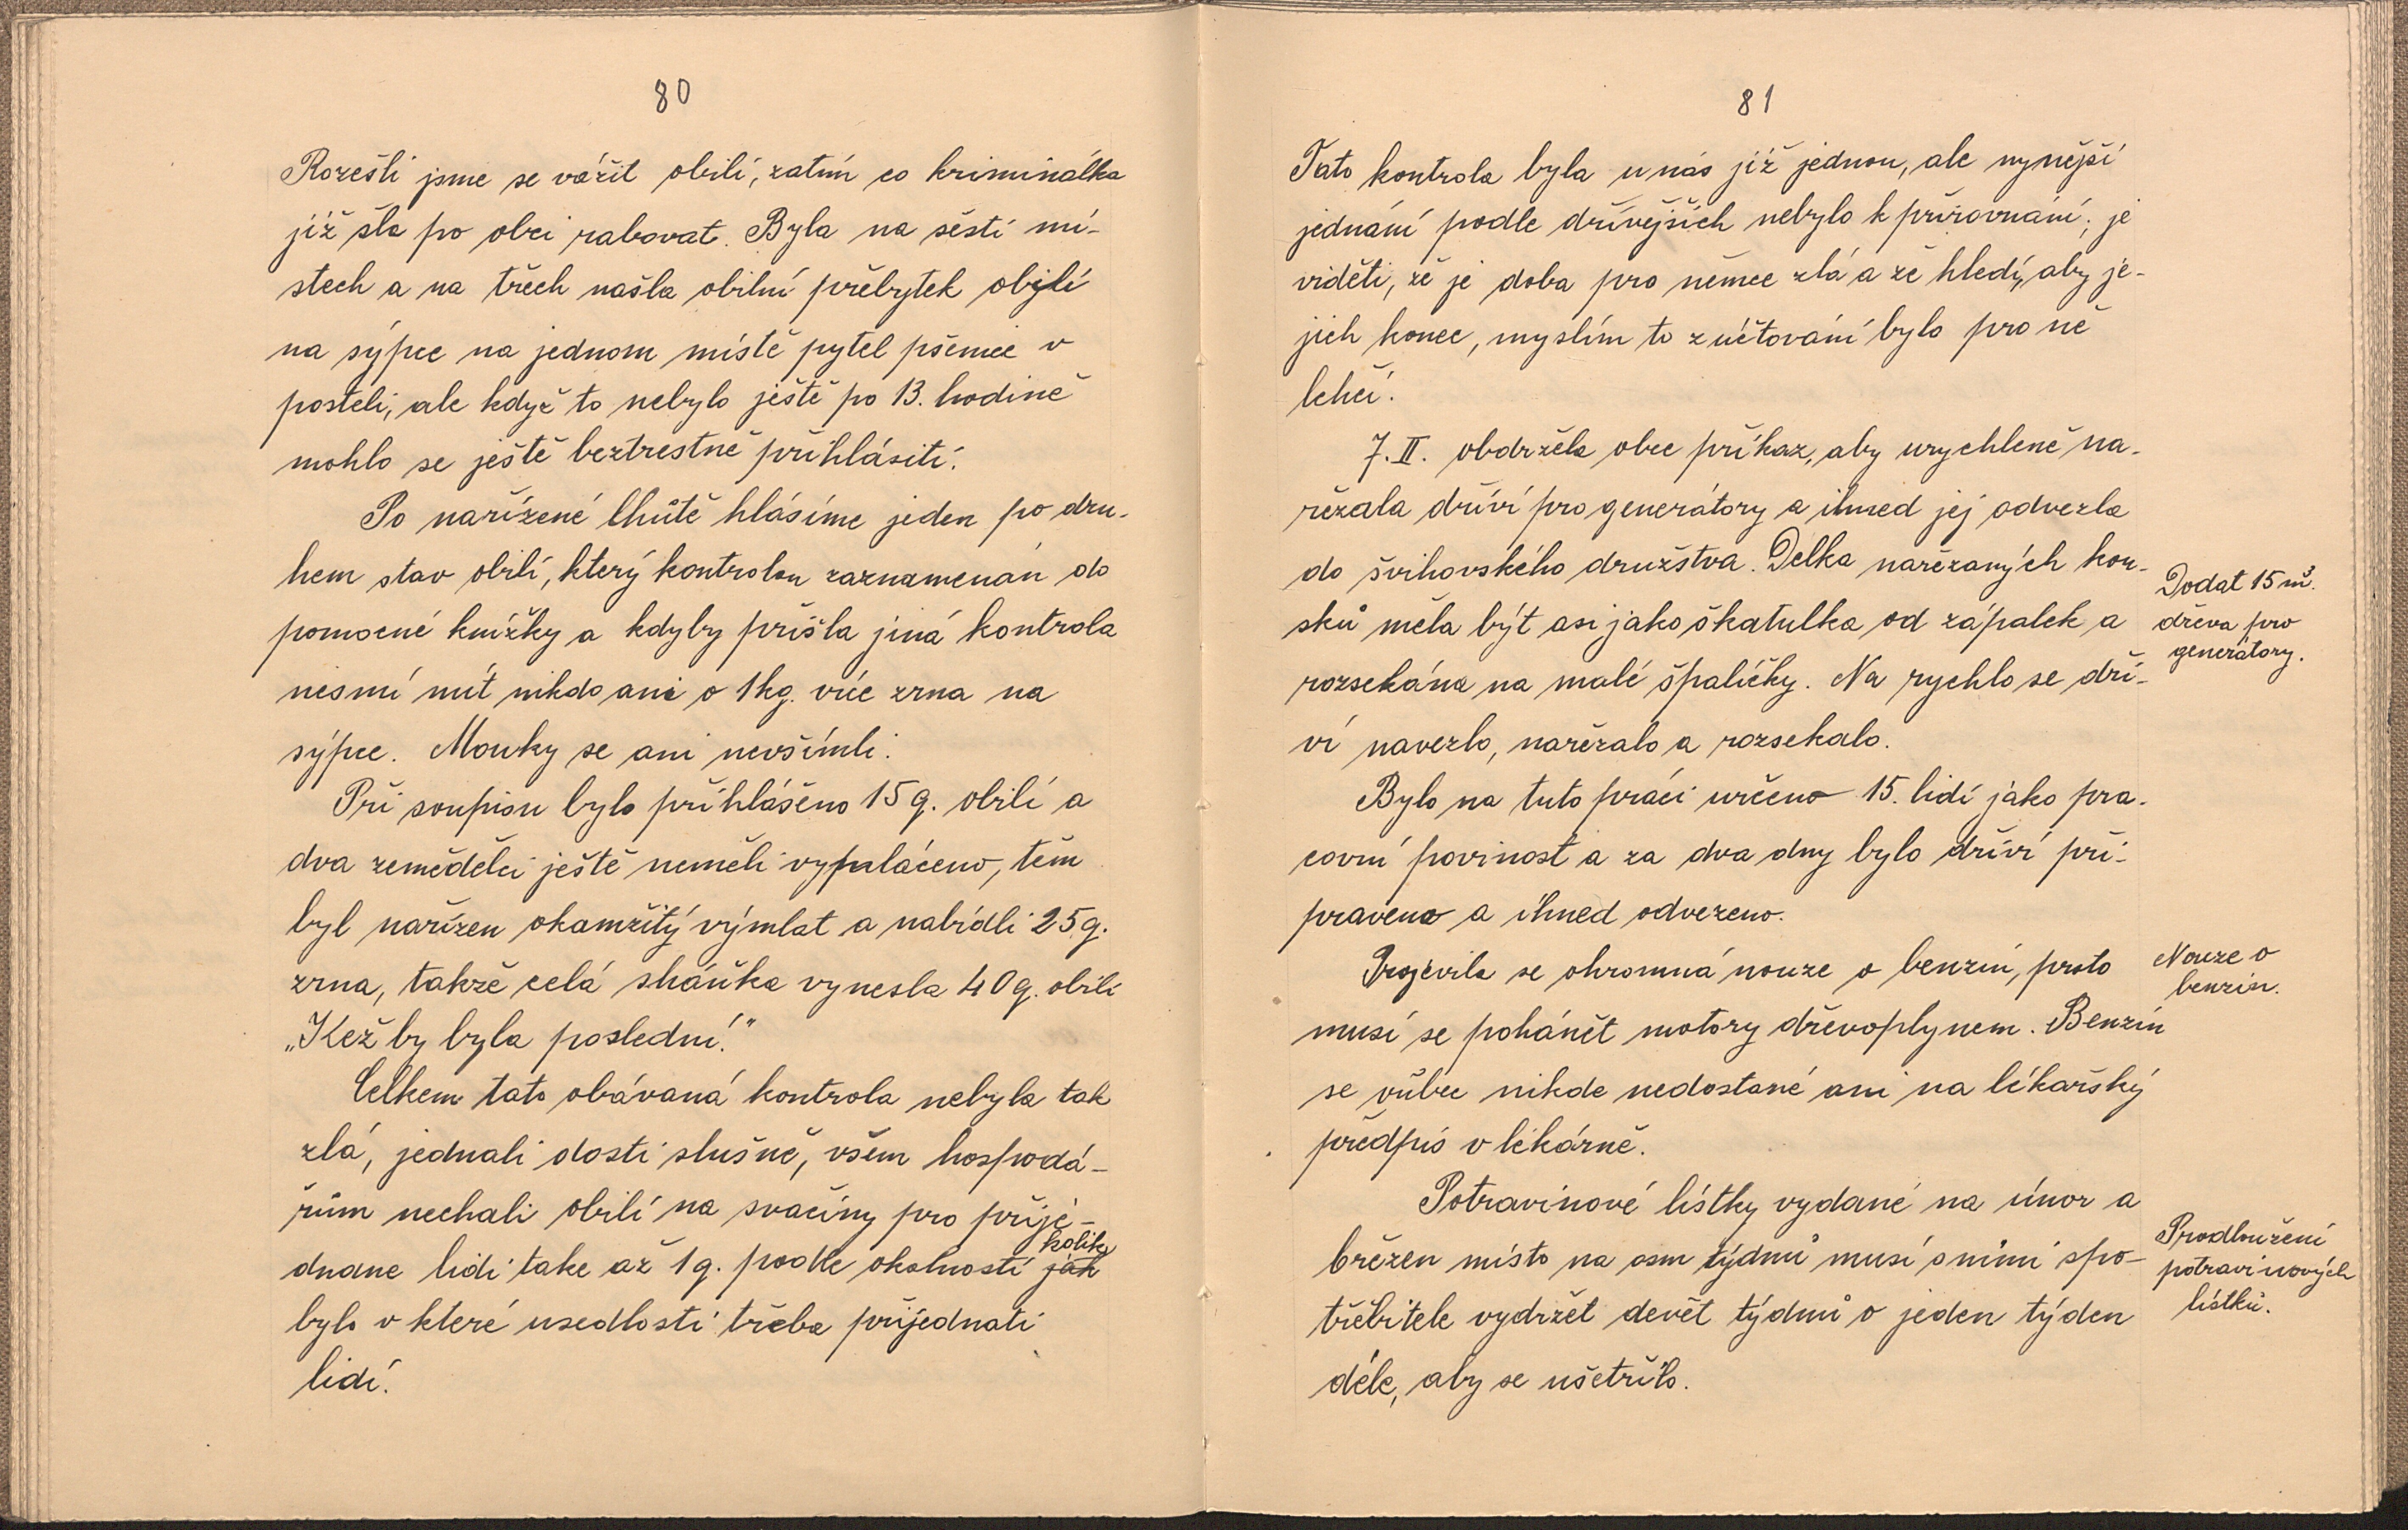 80
Rozešli jsme se vážit obilí, zatím co kriminálka
již šla po obci rabovat. Byla na šesti mí-
stech a na třech našla obilní přebytek obilí
na sýpce na jednom místě pytel pšenice v
posteli, ale když to nebylo ještě po 13. hodině
mohlo se ještě beztrestně přihlásiti.
Po nařízené lhůtě hlásíme jeden po dru-
hem stav obilí, který kontrolou zaznamenán do
pomocné knížky a kdyby přišla jiná kontrola
nesmí mít nikdo ani o 1 kg. více zrna na
sýpce. Mouky se ani nevšímli.
Při soupisu bylo přihlášeno 15 q. obilí a
dva zemědělci ještě neměli vymláceno, těm
byl nařízen okamžitý výmlat a nabídli 25 q.
zrna, takže celá sháňka vynesla 40 q. obilí
„Kež by byla poslední."
Celkem tato obávaná kontrola nebyla tak
zlá, jednali dosti slušně, všem hospodá-
řům nechali obilí na svačiny pro přijé-
dnane lidi take až 1 q. podle okolností jak kolik
bylo v které usedlosti třeba přijednati
lidí.
81
Tato kontrola byla u nás již jednou, ale nynější
jednání podle dřívějších nebylo k přirovnání; je
viděti, že je doba pro němce zlá a že hledí, aby je-
jich konec, myslím to zúčtování bylo pro ně
lehčí.
7. II. obdržela obec příkaz, aby urychleně na-
řezala dříví pro generátory a ihned jej odvezla
do švihovského družstva. Délka nařezaných kou-
sků měla být asi jako škatulka od zápalek a
rozsekána na malé špalíčky. Na rychlo se dří-
ví navezlo, nařezalo a rozsekalo.
Bylo na tuto práci určeno 15. lidí jako pra-
covní povinost a za dva dny bylo dříví při-
praveno a ihned odvezeno.
Projevila se ohromná nouze o benzin, proto
musí se pohánět motory dřevoplynem. Benzín
se vůbec nikde nedostané ani na lékařský
předpis v lékárně.
Potravinové lístky vydané na únor a
březen místo na osm týdnů musí s nimi spo-
třebitele vydržet devět týdnů o jeden týden
déle, aby se ušetřilo.
Dodat 15 m³.
dřeva pro
generátory.
Nouze o
benzin.
Prodloužení
potravinových
lístků.